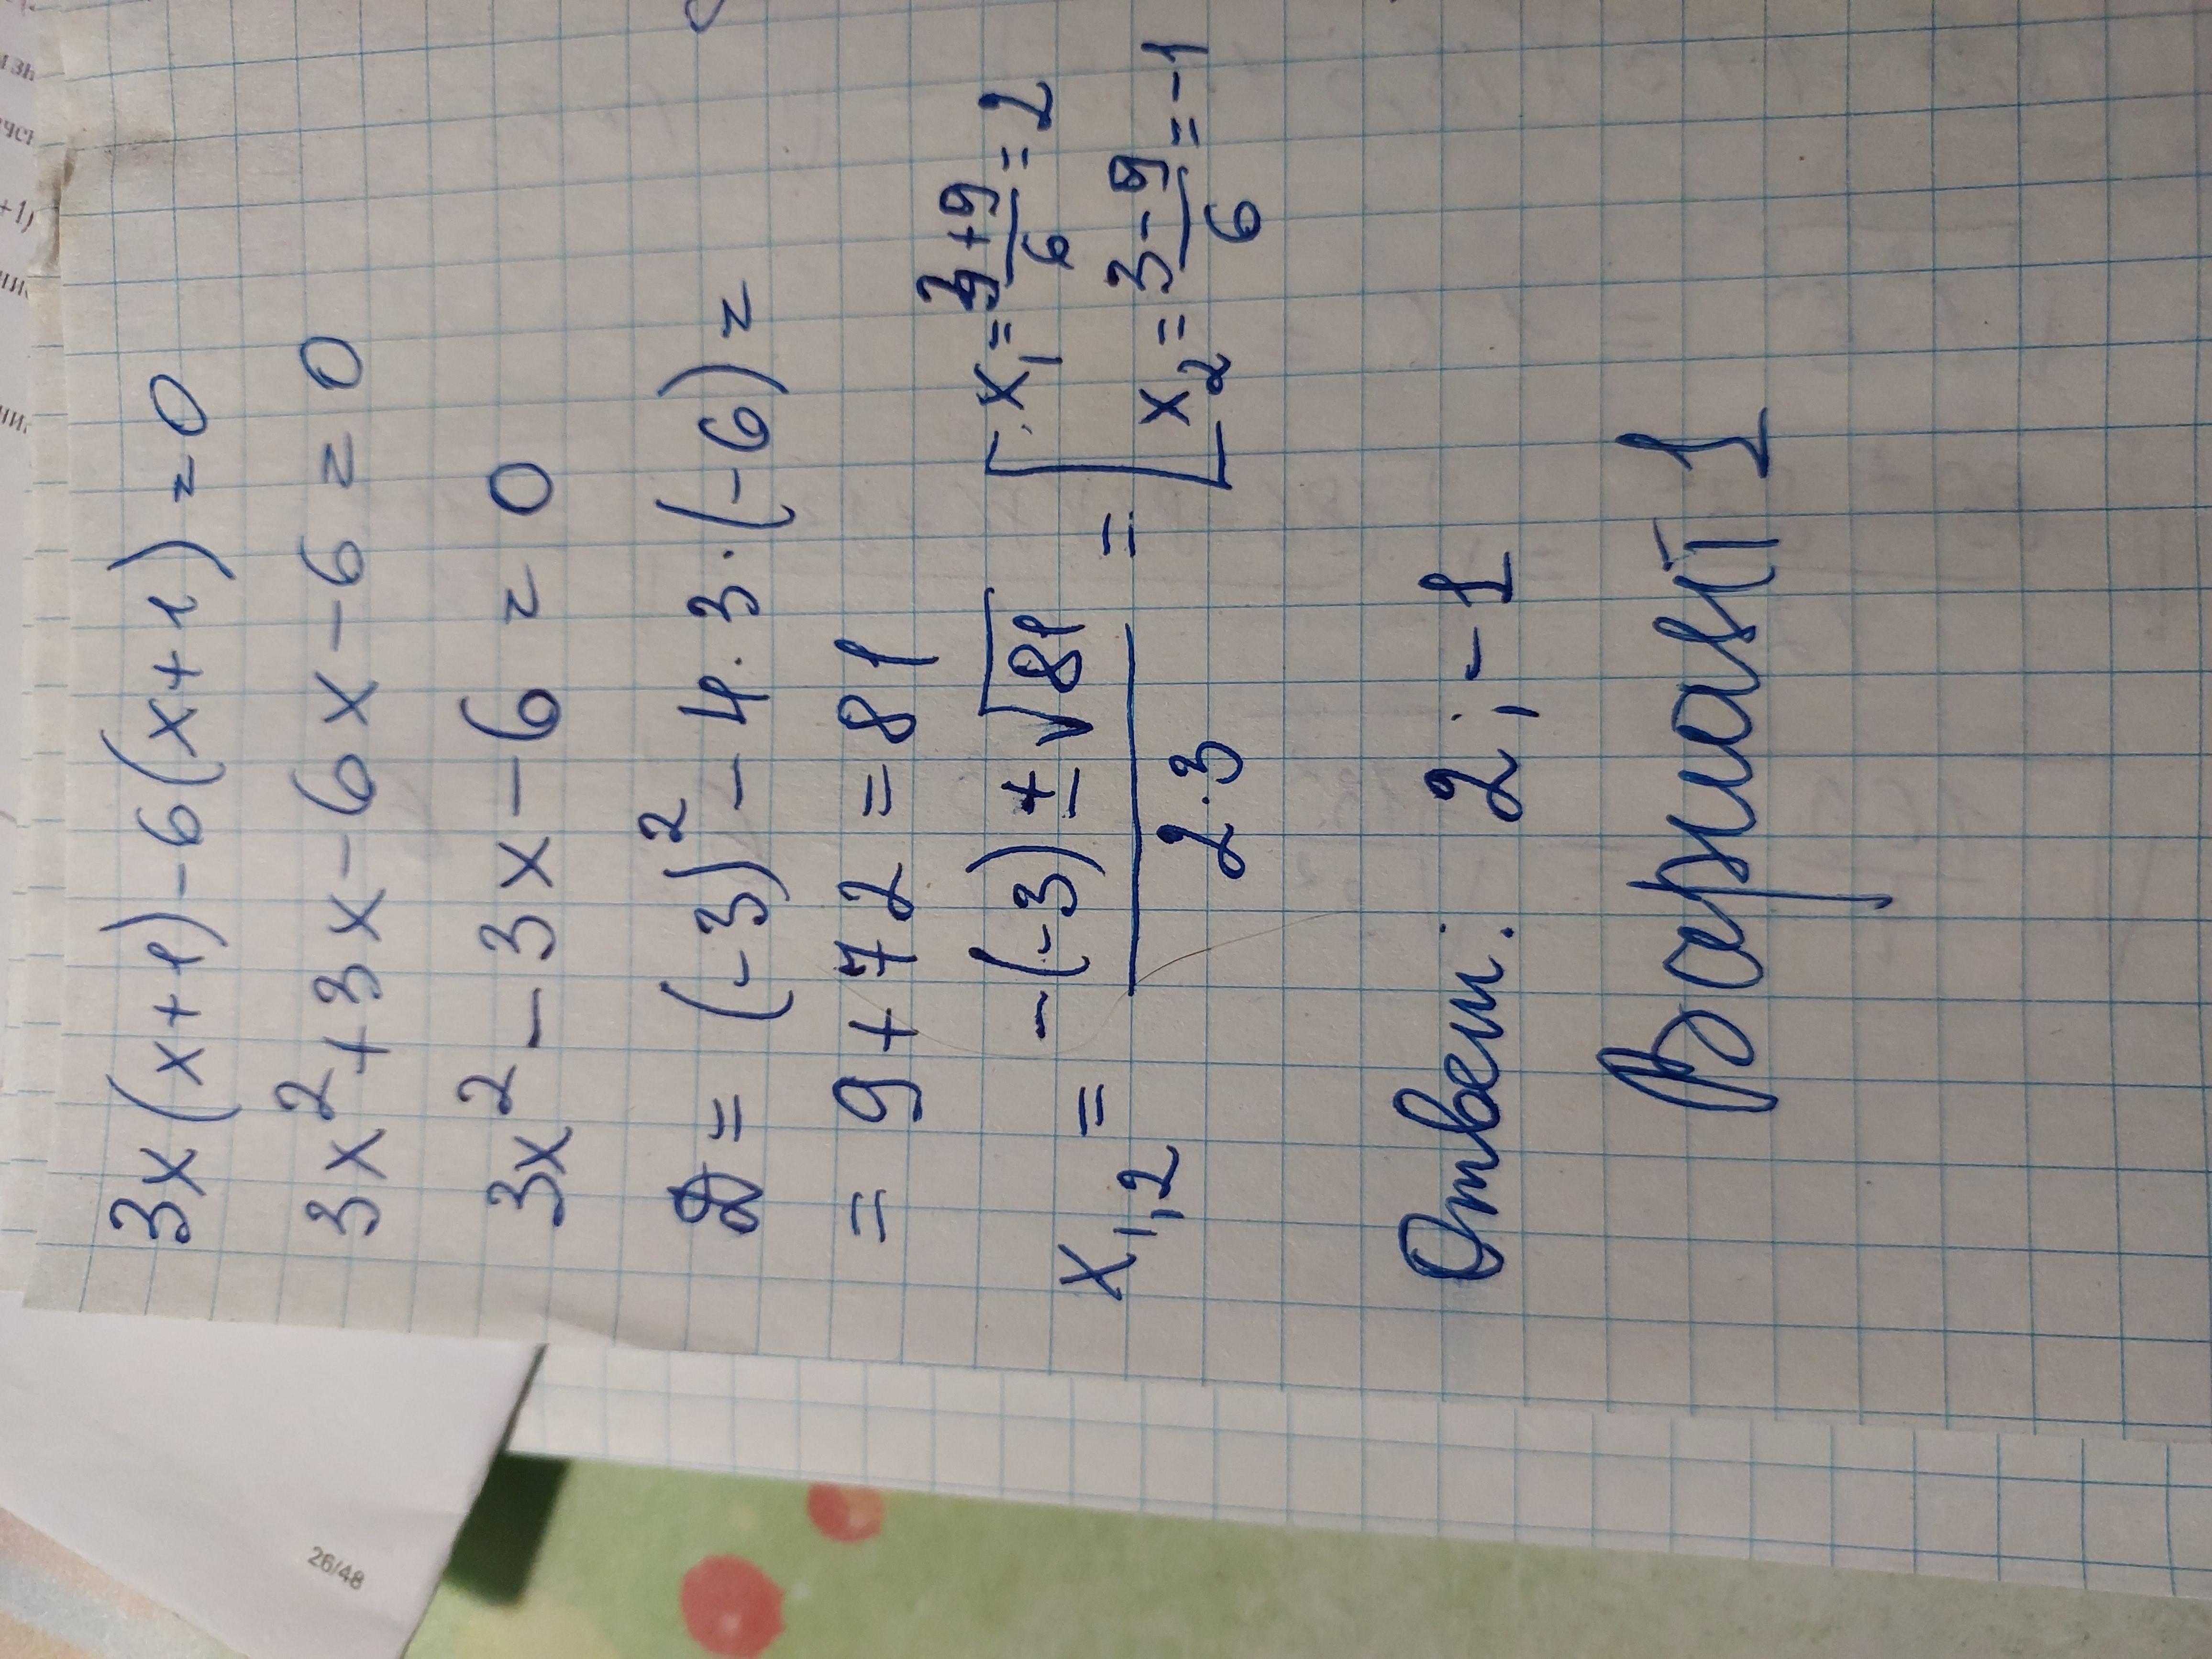 3x(x+1)-6(x+1)=0
3x²+3x-6x-6=0
3x²-3x-6=0
D=(-3)²-4·3·(-6)=
=9+72=81
x₁,₂ = (-(-3)±√81)/(2·3) = [x₁=(3+9)/6=2
x₂=(3-9)/6=-1
Ответ: 2;-1
Вариант 1
26/48
+1)